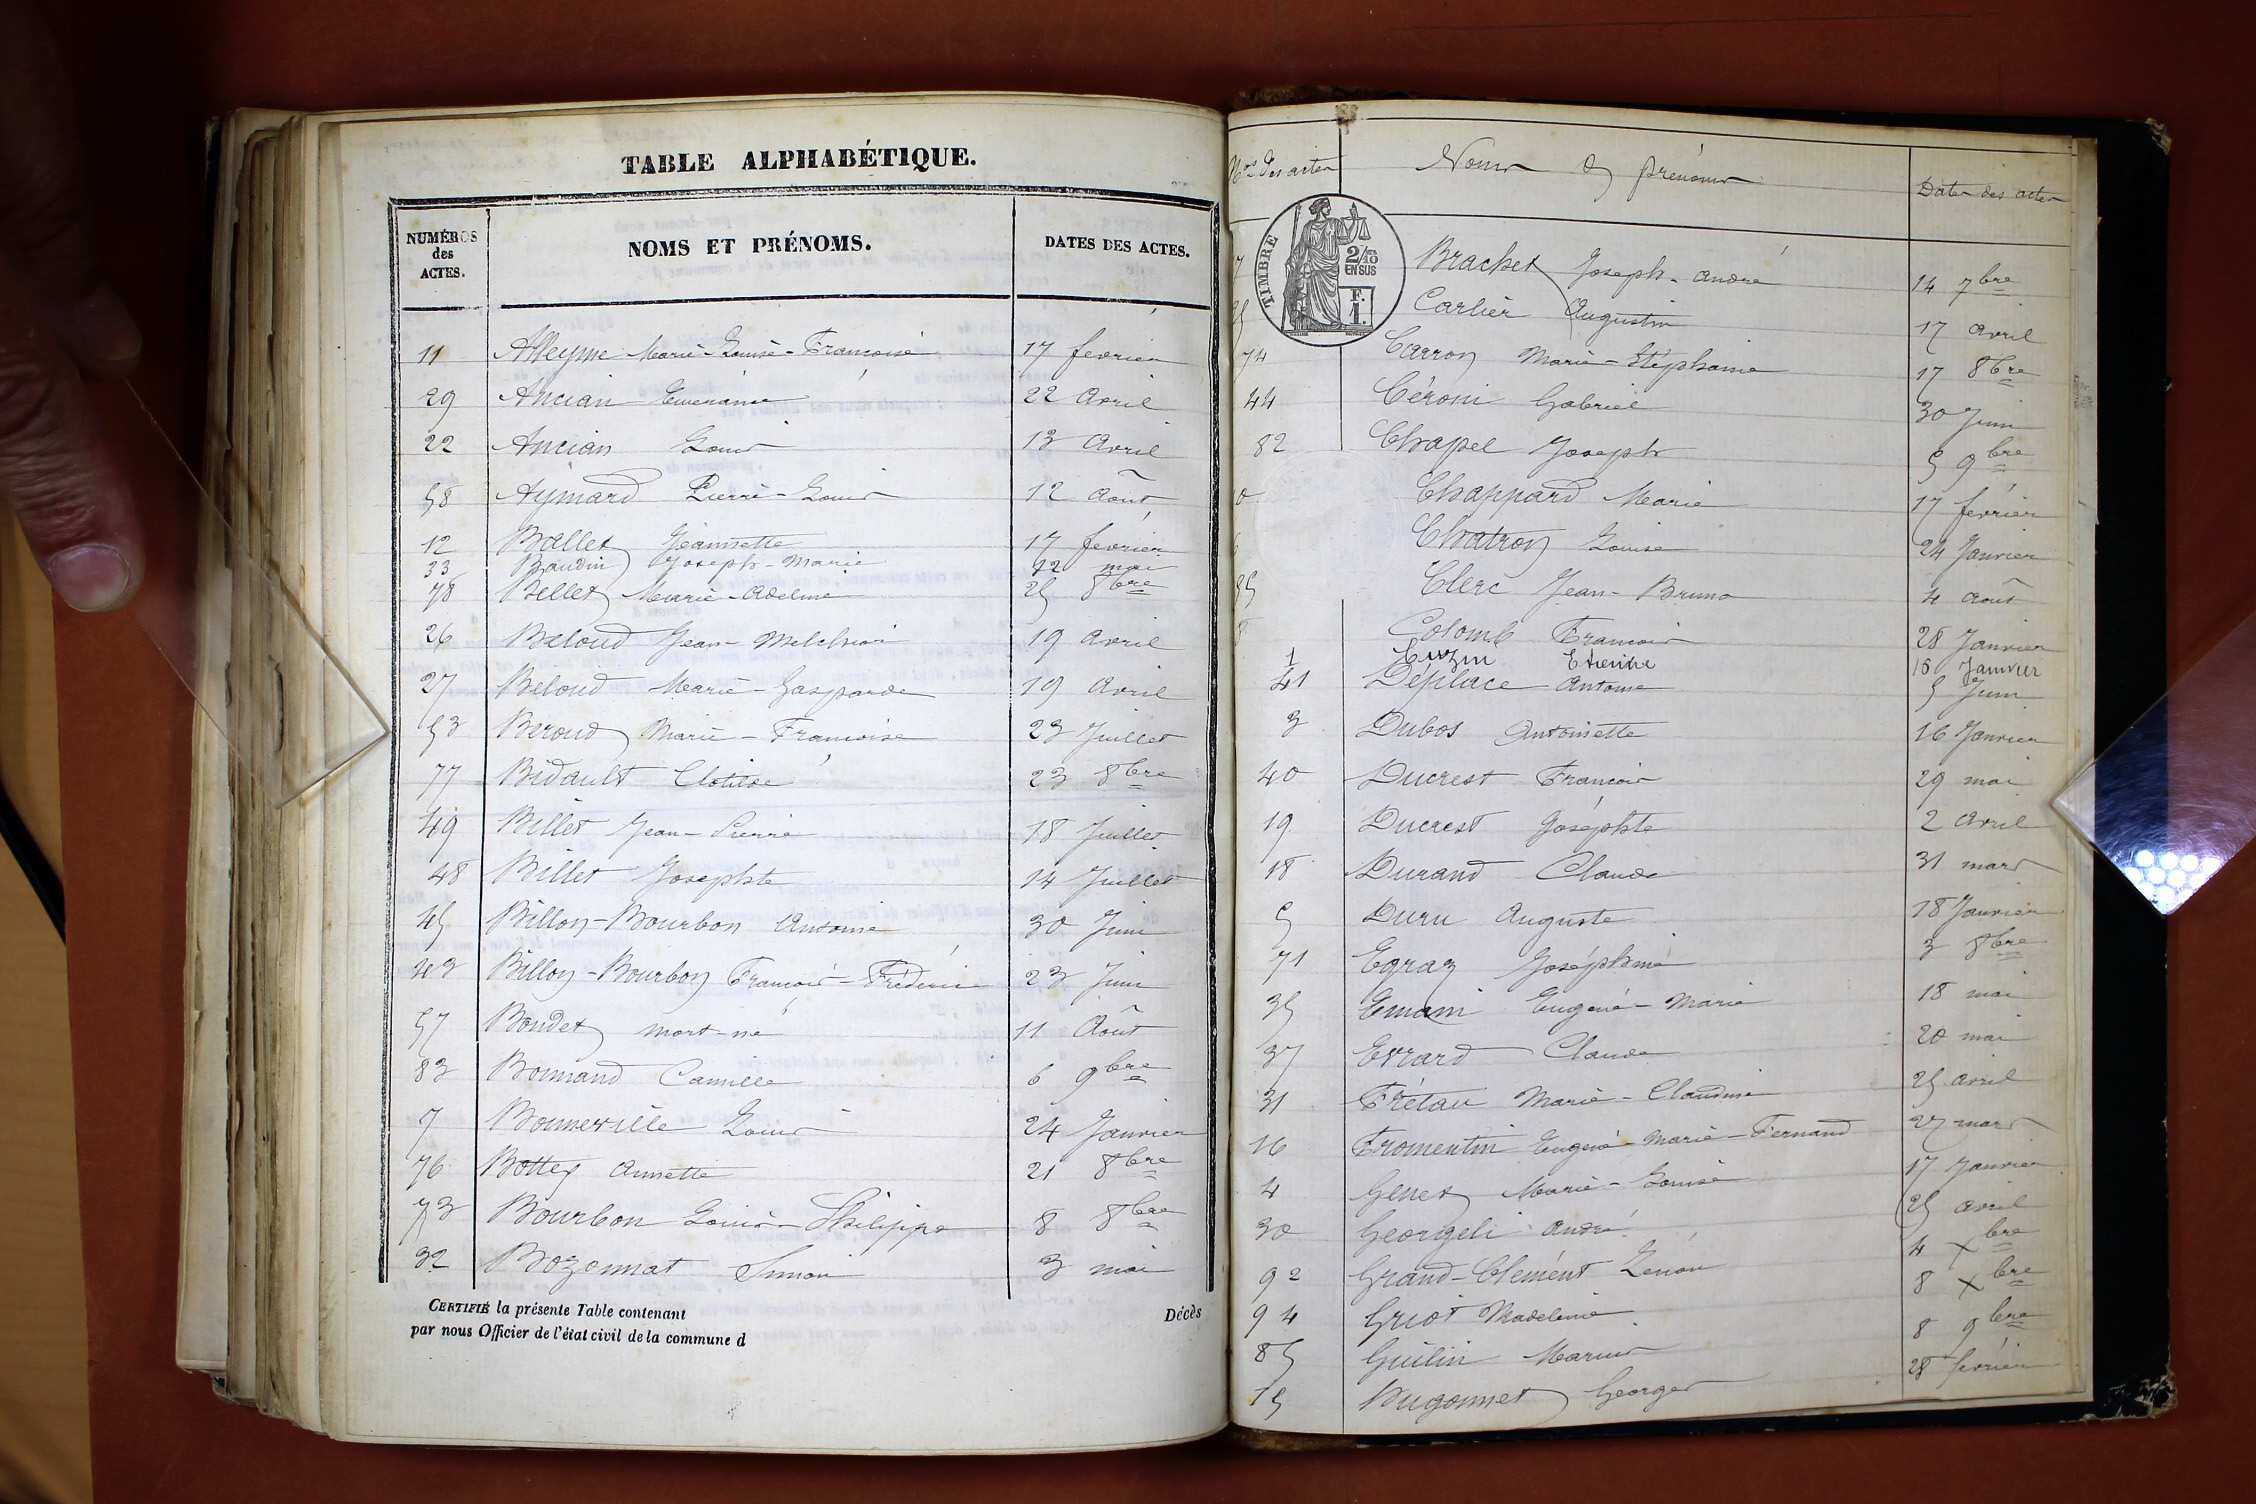 TABLE ALPHABÉTIQUE.
NUMÉROS des ACTES. NOMS ET PRÉNOMS. DATES DES ACTES.
11 Alleyme Marie-Louise-Françoise 17 février
29 Ancian 22 Avril
22 Ancian Louis 13 Avril
58 Aymard Pierre-Louis 12 Août
12 Ballet Jeannette 17 février
33 Baudin Joseph-Marie 12 mai
78 Bellet Marie-Adeline 25 8bre
26 Béloud Jean-Melchior 19 avril
27 Béloud Marie-Gasparde 19 avril
53 Béroud Marie-Françoise 23 Juillet
77 Bidault Clotilde 23 8bre
49 Billet Jean-Pierre 18 Juillet
48 Billet Josephte 14 Juillet
45 Billon-Bourbon Antoine 30 Juin
43 Billon-Bourbon François-Frédéric 23 Juin
57 Boudet mort-né 11 Août
83 Bonnand Camille 6 9bre
7 Bonneville Louis 24 Janvier
76 Bottex Annette 21 8bre
73 Bourbon Louis-Philippe 8 8bre
32 Bozonnat Simon 3 mai
CERTIFIÉ la présente Table contenant Décès
par nous Officier de l'état civil de la commune d
Nos des actes Noms & prénoms Dates des actes
TIMBRE 2/10 EN SUS F. 1.
7 Brachet Joseph-André 14 7bre
25 Carlier Augustin 17 avril
74 Carron Marie-Stéphanie 17 8bre
44 Céroni Gabriel 30 Juin
82 Chapel Joseph 5 9bre
0 Chappard Marie 17 février
6 Chatron Louise 24 Janvier
55 Clerc Jean-Bruno 4 août
8 Colomb François 28 Janvier
1 Cuzin Etienne 15 Janvier
41 Déplace Antoine 5 Juin
3 Dubos Antoinette 16 Janvier
40 Ducrest François 29 mai
19 Ducrest Joséphte 2 avril
18 Durand Claude 31 mars
5 Duru Auguste 18 Janvier
71 Egraz Joséphine 3 8bre
35 Emain Eugène-Marie 18 mai
37 Evrard Claude 20 mai
31 Frétau Marie-Claudine 25 avril
16 Fromentin Eugène-Marie-Fernand 27 mars
4 Genet Marie-Louise 17 Janvier
30 Georgeli André 25 avril
92 Grand-Clément Zénon 4 Xbre
94 Griot Madeleine 8 Xbre
85 Guilin Marius 8 9bre
15 Hugonnet Georges 28 février